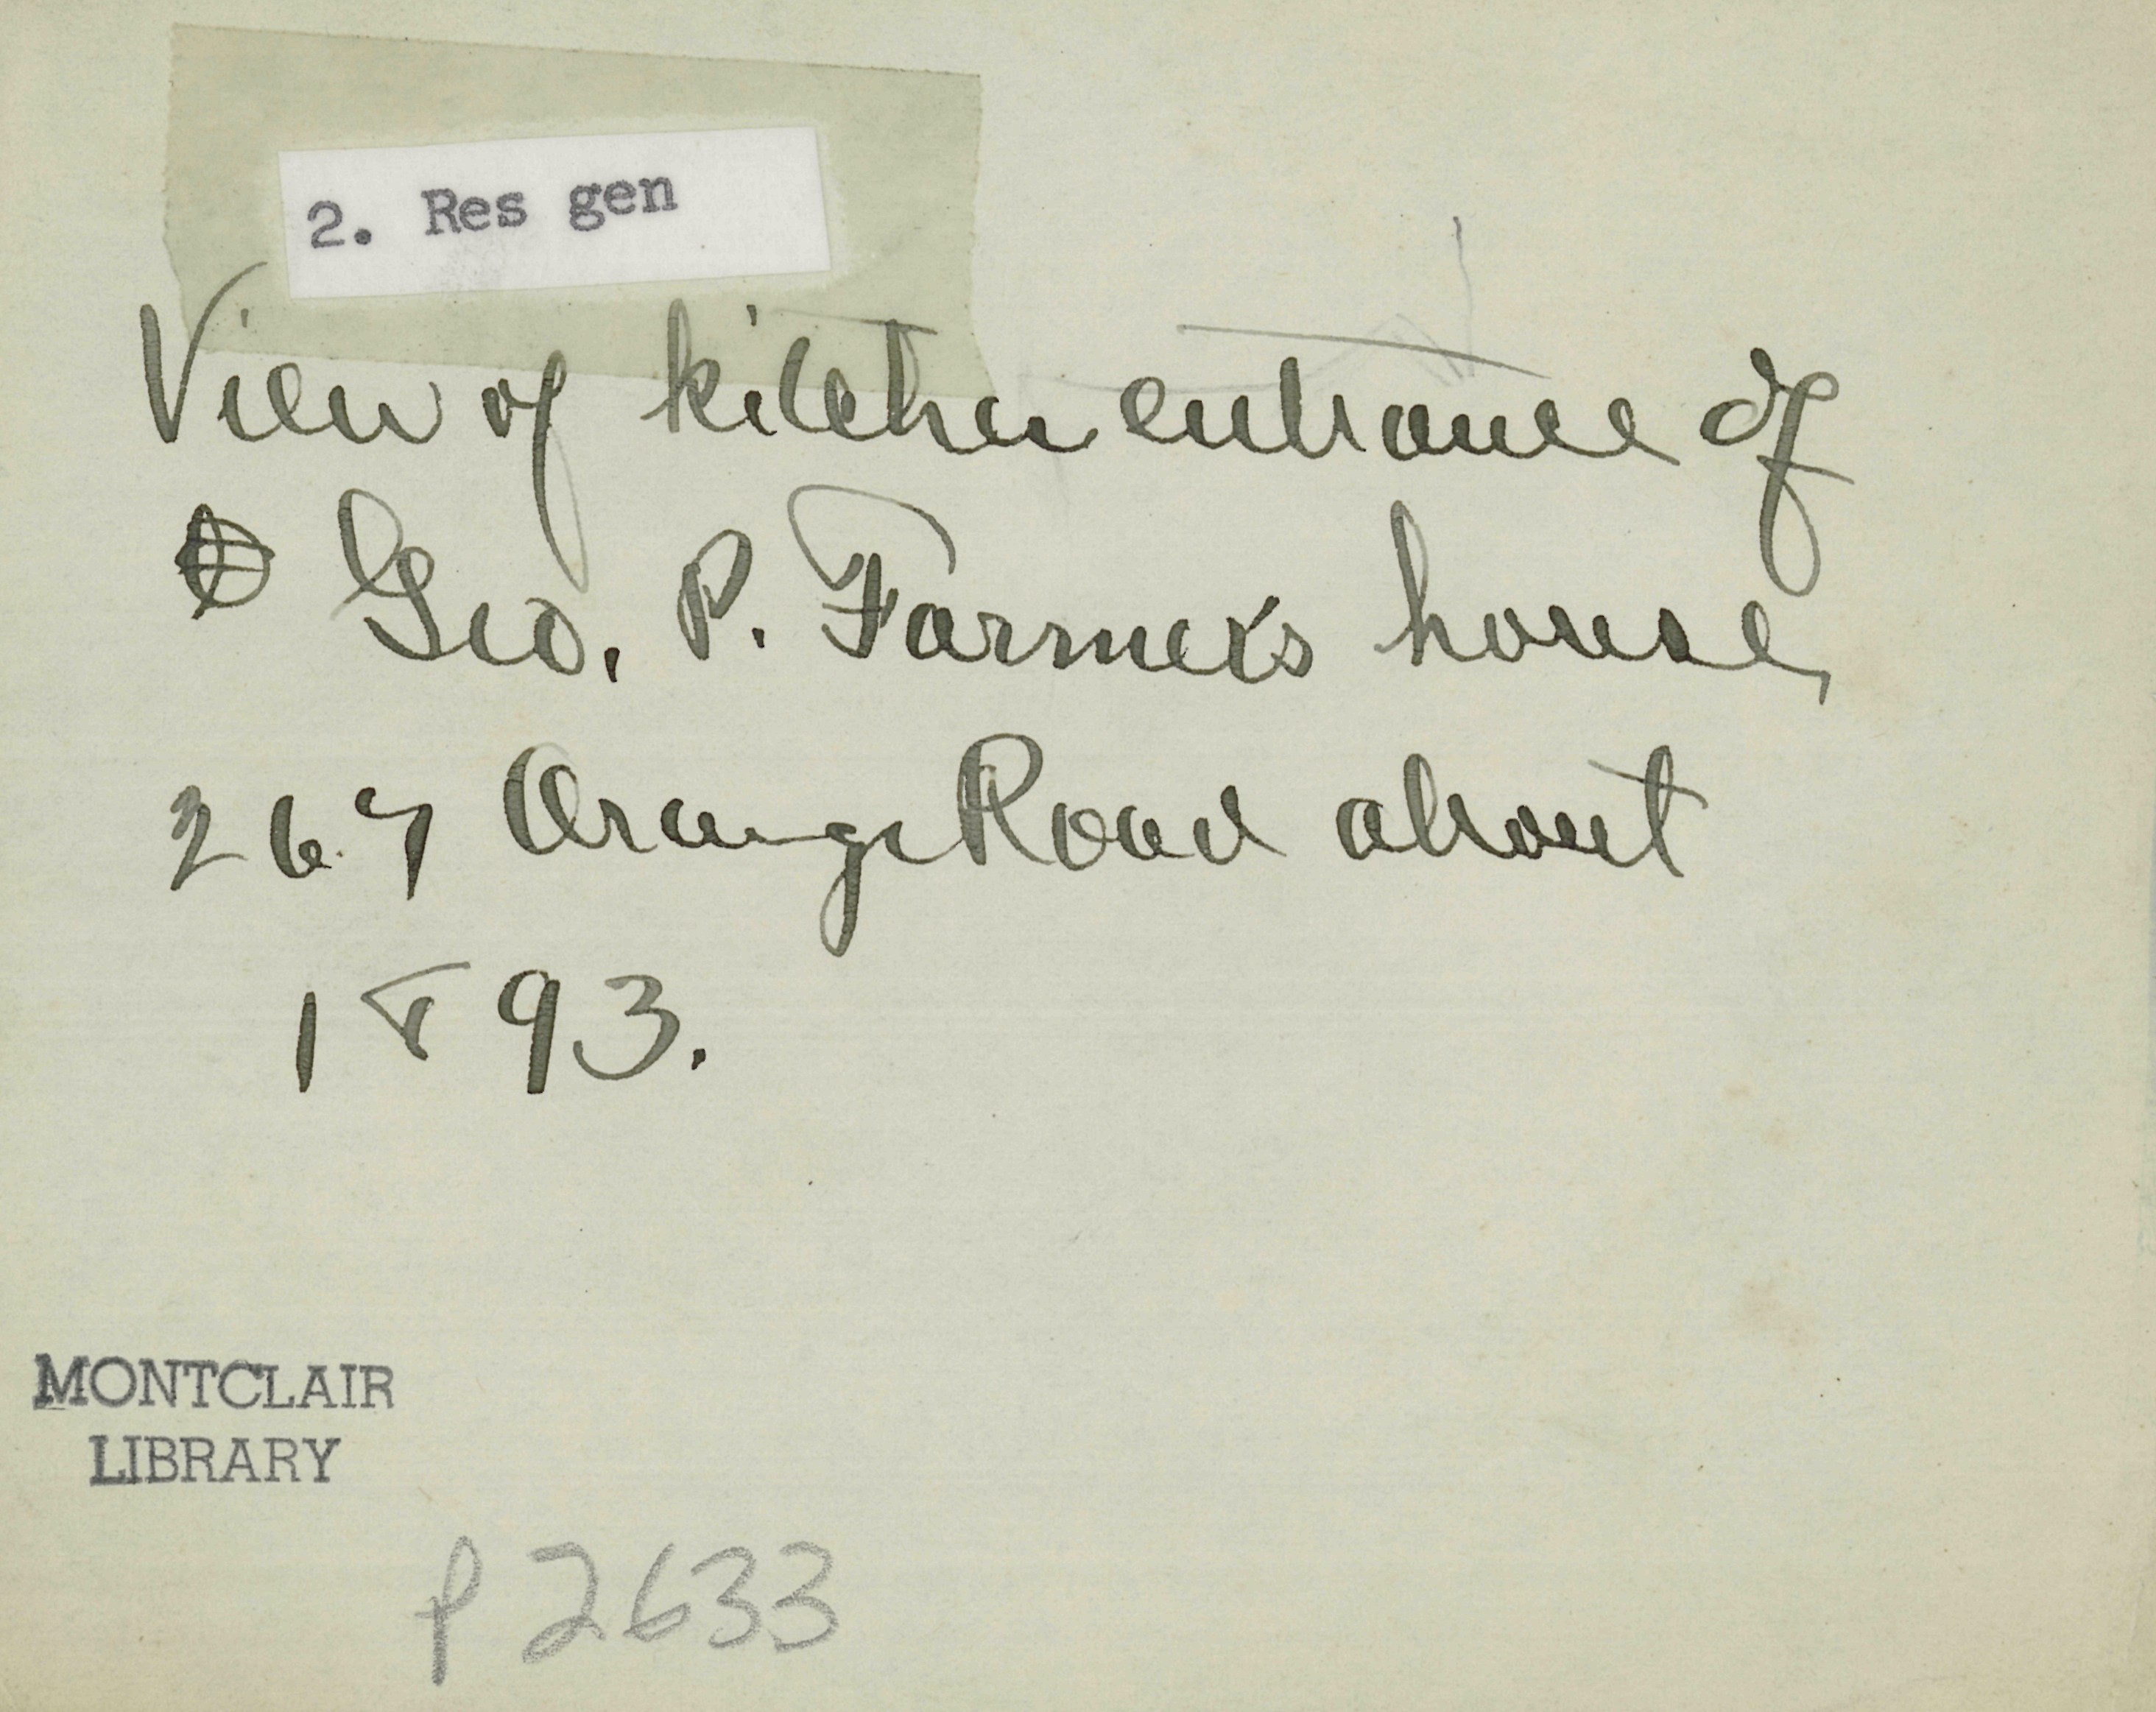 2. Res gen
View of kitchen entrance of
Geo. P. Farmer's house,
267 Orange Road about
1893.
MONTCLAIR
LIBRARY
P 2633